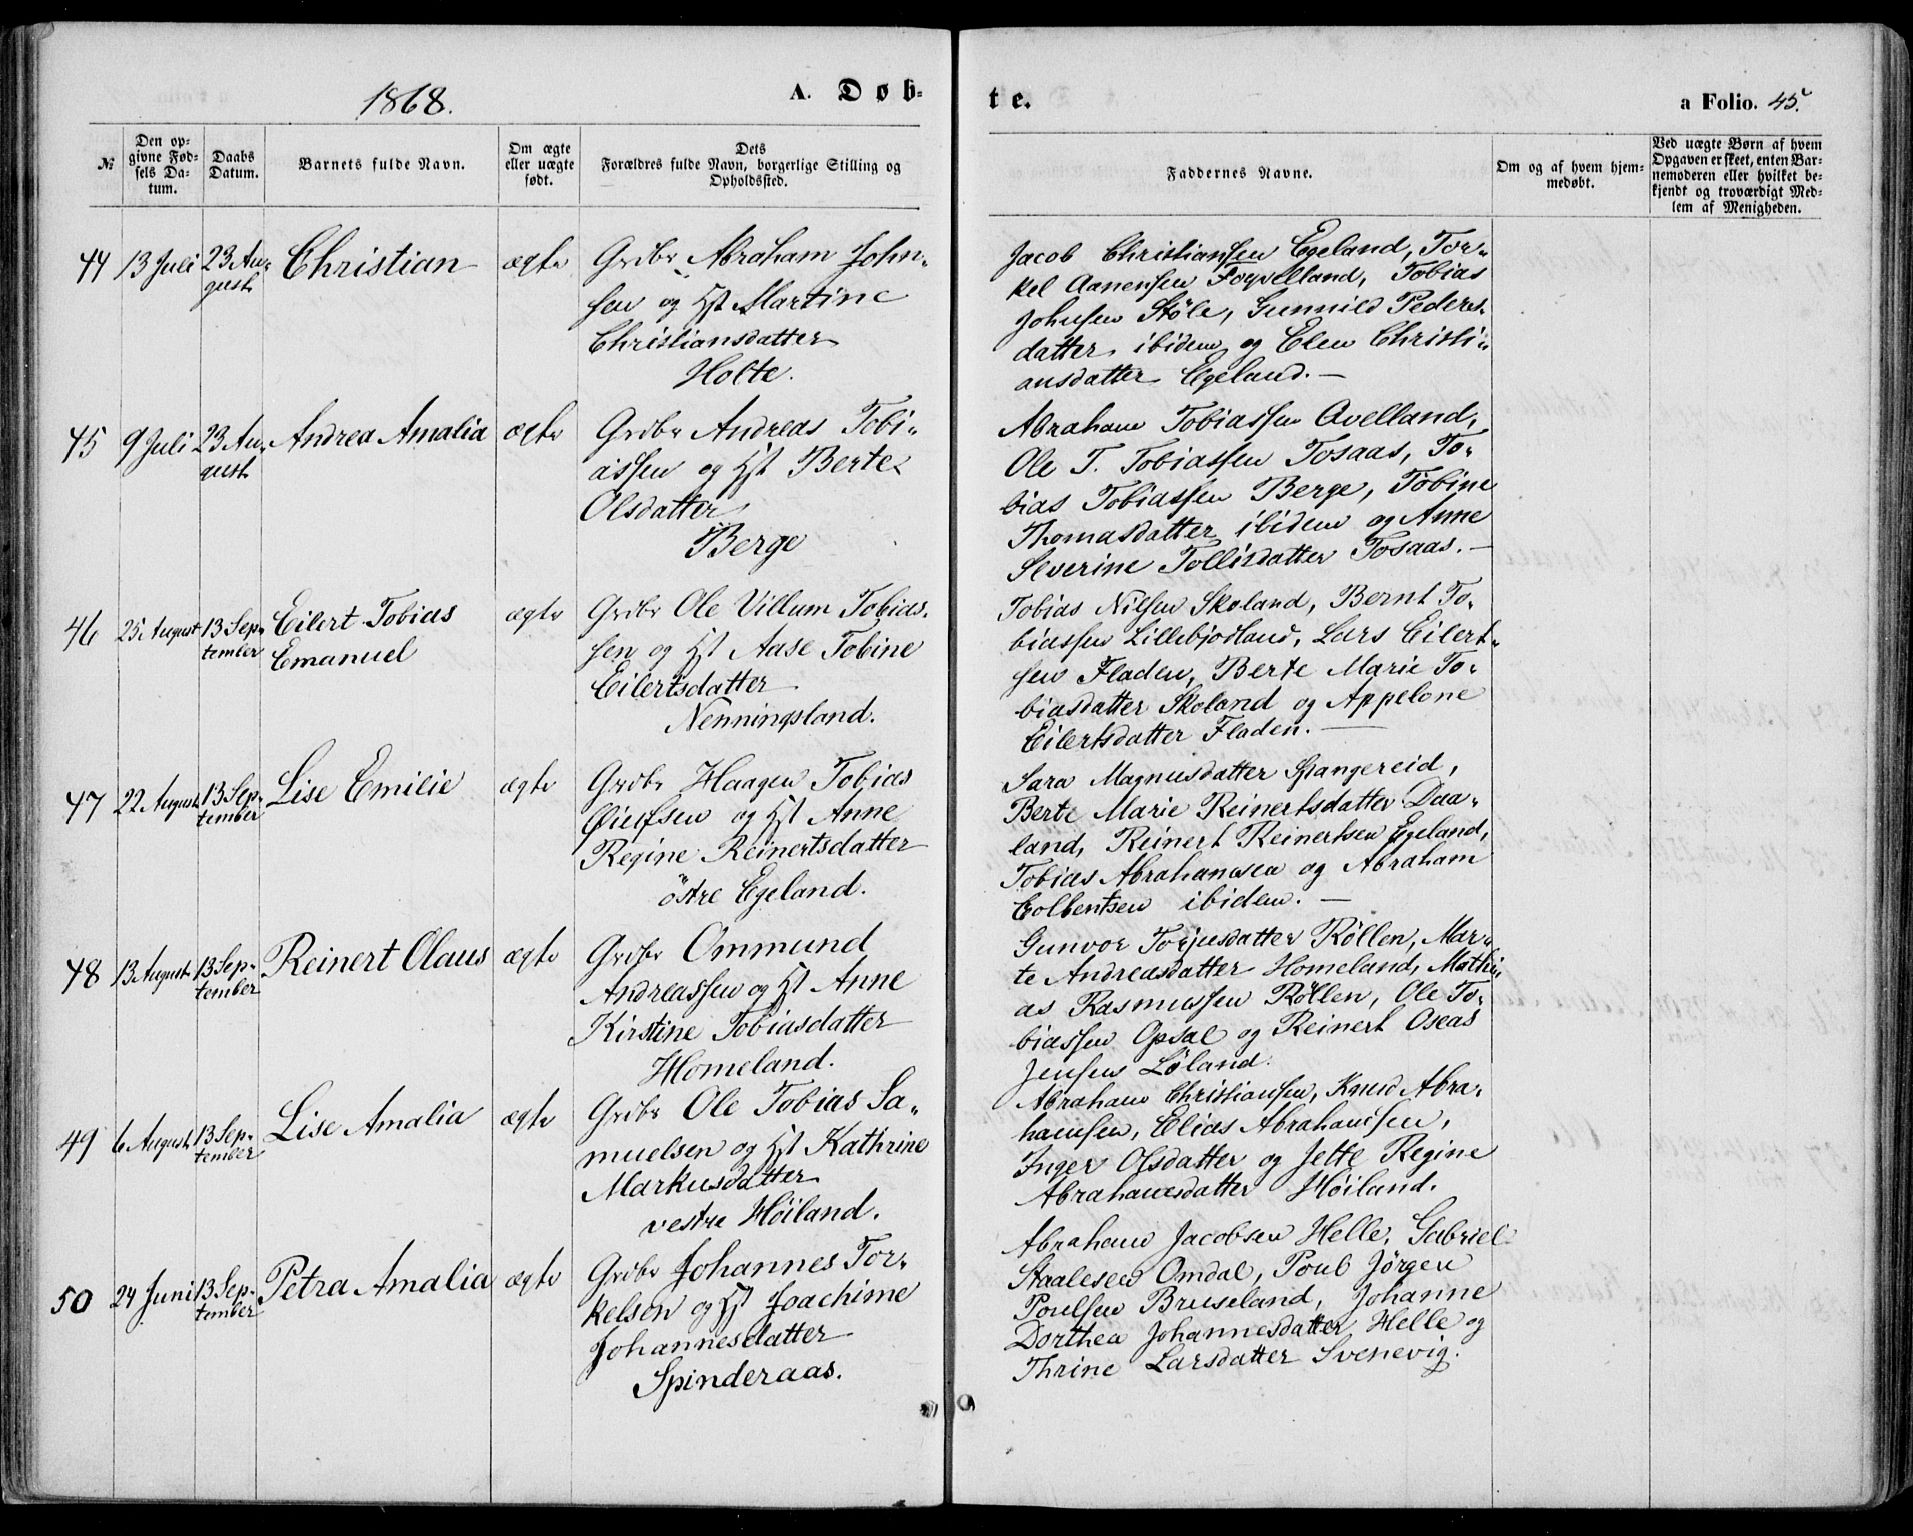 1868.
A. Døb-
te.
a Folio. 45.
№
Den op-
givne Fød-
sels Da-
tum.
Daabs
Datum.
Barnets fulde Navn.
Om ægte
eller uægte
født.
Dets
Forældres fulde Navn, borgerlige Stilling og
Opholdssted.
Faddernes Navne.
Om og af hvem hjem-
medøbt.
Ved uægte Børn af hvem
Opgaven er skeet, enten Bar-
nemoderen eller hvilket be-
kjendt og troværdigt Med-
lem af Menigheden.
44 13 Juli 23 Au-
gust
Christian
ægte
Grdbr Abraham John-
sen og Hst Martine
Christiansdatter
Holte.
Jacob Christiansen Egeland, Tor-
kel Aanensen Foyvelland, Tobias
Johnsen Støle, Gunnild Peders-
datter ibidem og Elen Christi-
ansdatter Egeland. —
45 9 Juli 23 Au-
gust
Andrea Amalia
ægte
Grdbr Andreas Tobi-
assen og Hst Berte
Olsdatter
Berge
Abraham Tobiassen Avelland,
Ole T. Tobiassen Tosaas, To-
bias Tobiassen Berge, Tobine
Thomasdatter ibidem og Anne
Severine Tollisdatter Tosaas. —
46 25 August 13 Sep-
tember
Eilert Tobias
Emanuel
ægte
Grdbr Ole Villum Tobias-
sen og Hst Aase Tobine
Eilertsdatter
Nenningsland.
Tobias Nilsen Skoland, Bernt To-
biassen Lillebjodland, Lars Eilert-
sen Fladen, Berte Marie To-
biasdatter Skoland og Appelone
Eilertsdatter Fladen. —
47 22 August 13 Sep-
tember
Lise Emilie
ægte
Grdbr Haagen Tobias
og Hst Anne
Regine Reinertsdatter
östre Egeland.
Sara Magnusdatter Spangereid,
Berte Marie Reinertsdatter Daa-
land, Reinert Reinertsen Egeland,
Tobias Abrahamsen og Abraham
ibidem. —
48 13 August 13 Sep-
tember
Reinert Olaus
ægte
Grdbr Ommund
Andreassen og Hst Anne
Kirstine Tobiasdatter
Homeland.
Gunvor Torjusdatter Röllen, Mar-
te Andreasdatter Homeland, Mathi-
as Rasmussen Röllen, Ole To-
biassen Opsal og Reinert Oseas
Jensen Løland.
49 6 August 13 Sep-
tember
Lise Amalia
ægte
Grdbr Ole Tobias Sa-
muelsen og Hst Kathrine
Markusdatter
vestre Høiland.
Abraham Christiansen, Knud Abra-
hamsen, Elias Abrahamsen,
Inger Olsdatter og Jette Regine
Abrahamsdatter Høiland.
50 24 Juni 13 Sep-
tember
Petra Amalia
ægte
Grdbr Johannes Tor-
kelsen og Hst Joachime
Johannesdatter
Spinderaas.
Abraham Jacobsen Helle, Gabriel
Staalesen Omdal, Poul Jörgen
Poulsen Bruseland, Johanne
Dorthea Johannesdatter Helle og
Thrine Larsdatter Svenevig.